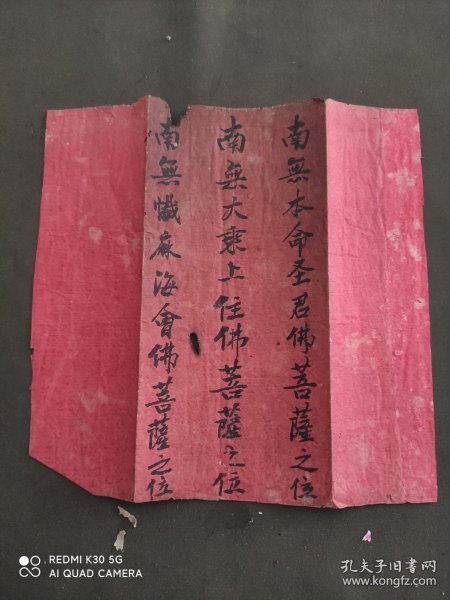 南無本命圣君佛菩薩之位
南無大乘上住佛菩薩之位
南無懺麻海會佛菩薩之位
REDMI K30 5G
AI QUAD CAMERA
孔夫子旧书网
www.kongfz.com